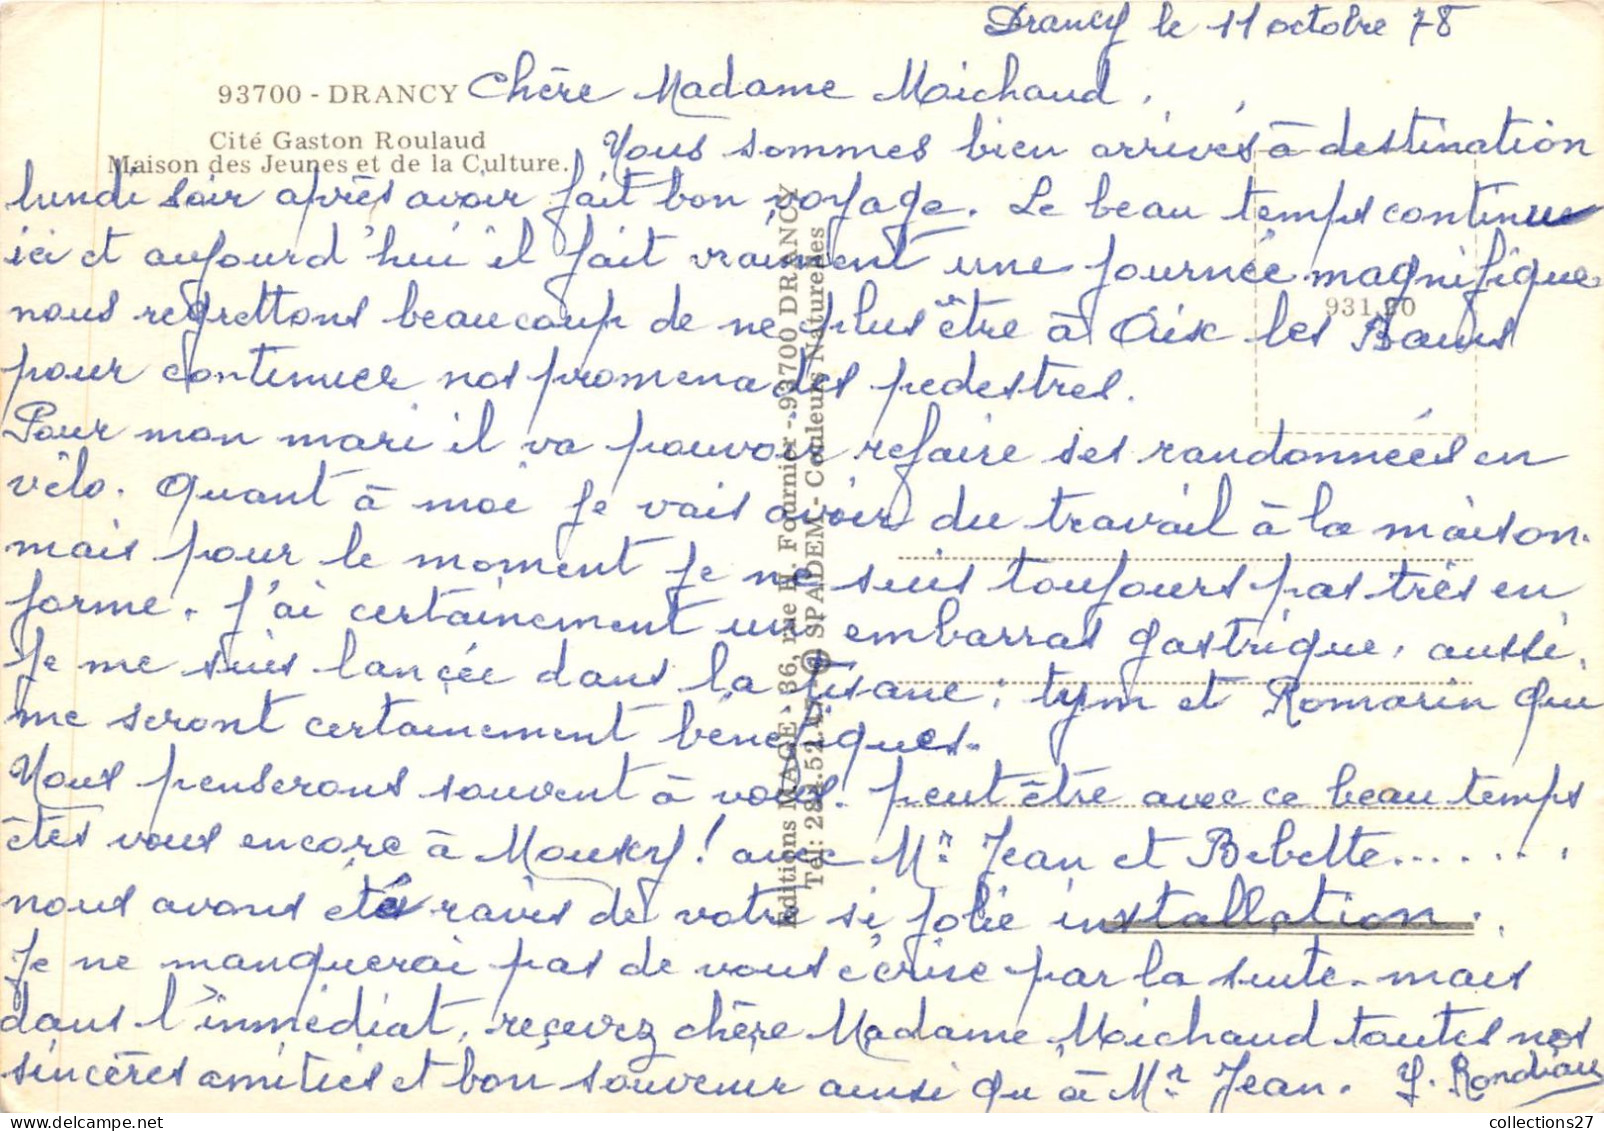 Drancy le 11 octobre 78
93700 - DRANCY
Chère Madame Moichaud,
Cité Gaston Roulaud
Maison des Jeunes et de la Culture.
Nous sommes bien arrivés à destination
lundi soir après avoir fait bon voyage. Le beau temps continue
ici et aujourd'hui il fait vraiment une journée magnifique.
931.20
nous regrettons beaucoup de ne plus être à Aix les Bains
pour continuer nos promenades pedestres.
Pour mon mari il va pouvoir refaire ses randonnées en
vélo. Quant à moi je vais avoir du travail à la maison.
mais pour le moment je ne suis toujours pas très en
forme. J'ai certainement un embarras gastrique, aussi,
je me suis lancée dans la tisane ; tym et Romarin qui
me seront certainement bénéfiques.
Nous penserons souvent à vous. peut être avec ce beau temps
êtes vous encore à Mouxy ! avec Mr Jean et Bebette.......
nous avons été ravis de votre si jolie installation.
Je ne manquerai pas de vous écrire par la suite. mais
dans l'immédiat, reçevez chère Madame Moichaud toutes nos
sincères amitiés et bon souvenir ainsi qu'à Mr Jean. Y. Rondeau
Editions MAGE - 36, rue H. Fournier - 93700 DRANCY
Tél: 284.52.45 - © SPADEM - Couleurs Naturelles
collections27